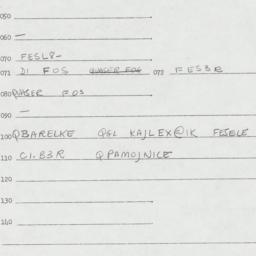 050
060 —
070 FESL8-
071 DI FOS 072 FES3E
080 QUASER FOS
090 —
100 QBARELKE QGL KAJLEX@IK FESELE
110 C1.83R QPAMOJNICE
120
130
140